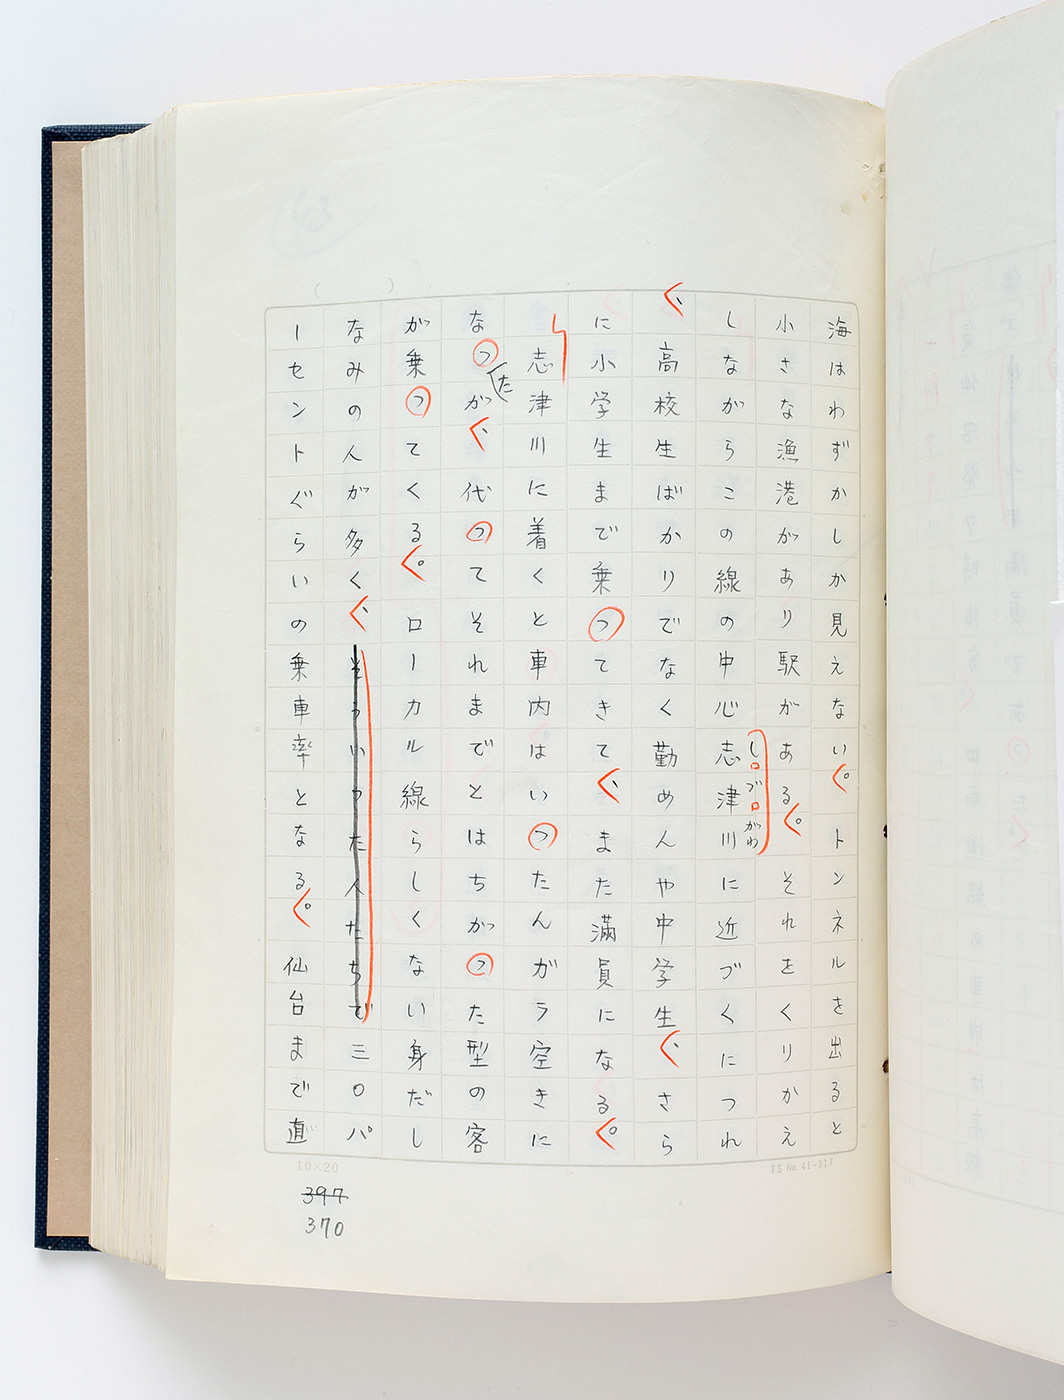 海はわずかしか見えない。トンネルを出ると
小さな漁港があり駅がある。それをくりかえ
しながらこの線の中心志津川に近づくにつれ
しづがわ
、高校生ばかりでなく勤めんや中学生、さら
に小学生まで乗ってきて、また満員になる。
志津川に着くと車内はいったんガラ空きに
なったが、代ってそれまでとはちがった型の客
が乗ってくる。ローカル線らしくない身だし
なみの人が多く、そういった人たちで三〇パ
ーセントぐらいの乗車率となる。仙台まで直
10×20
397
370